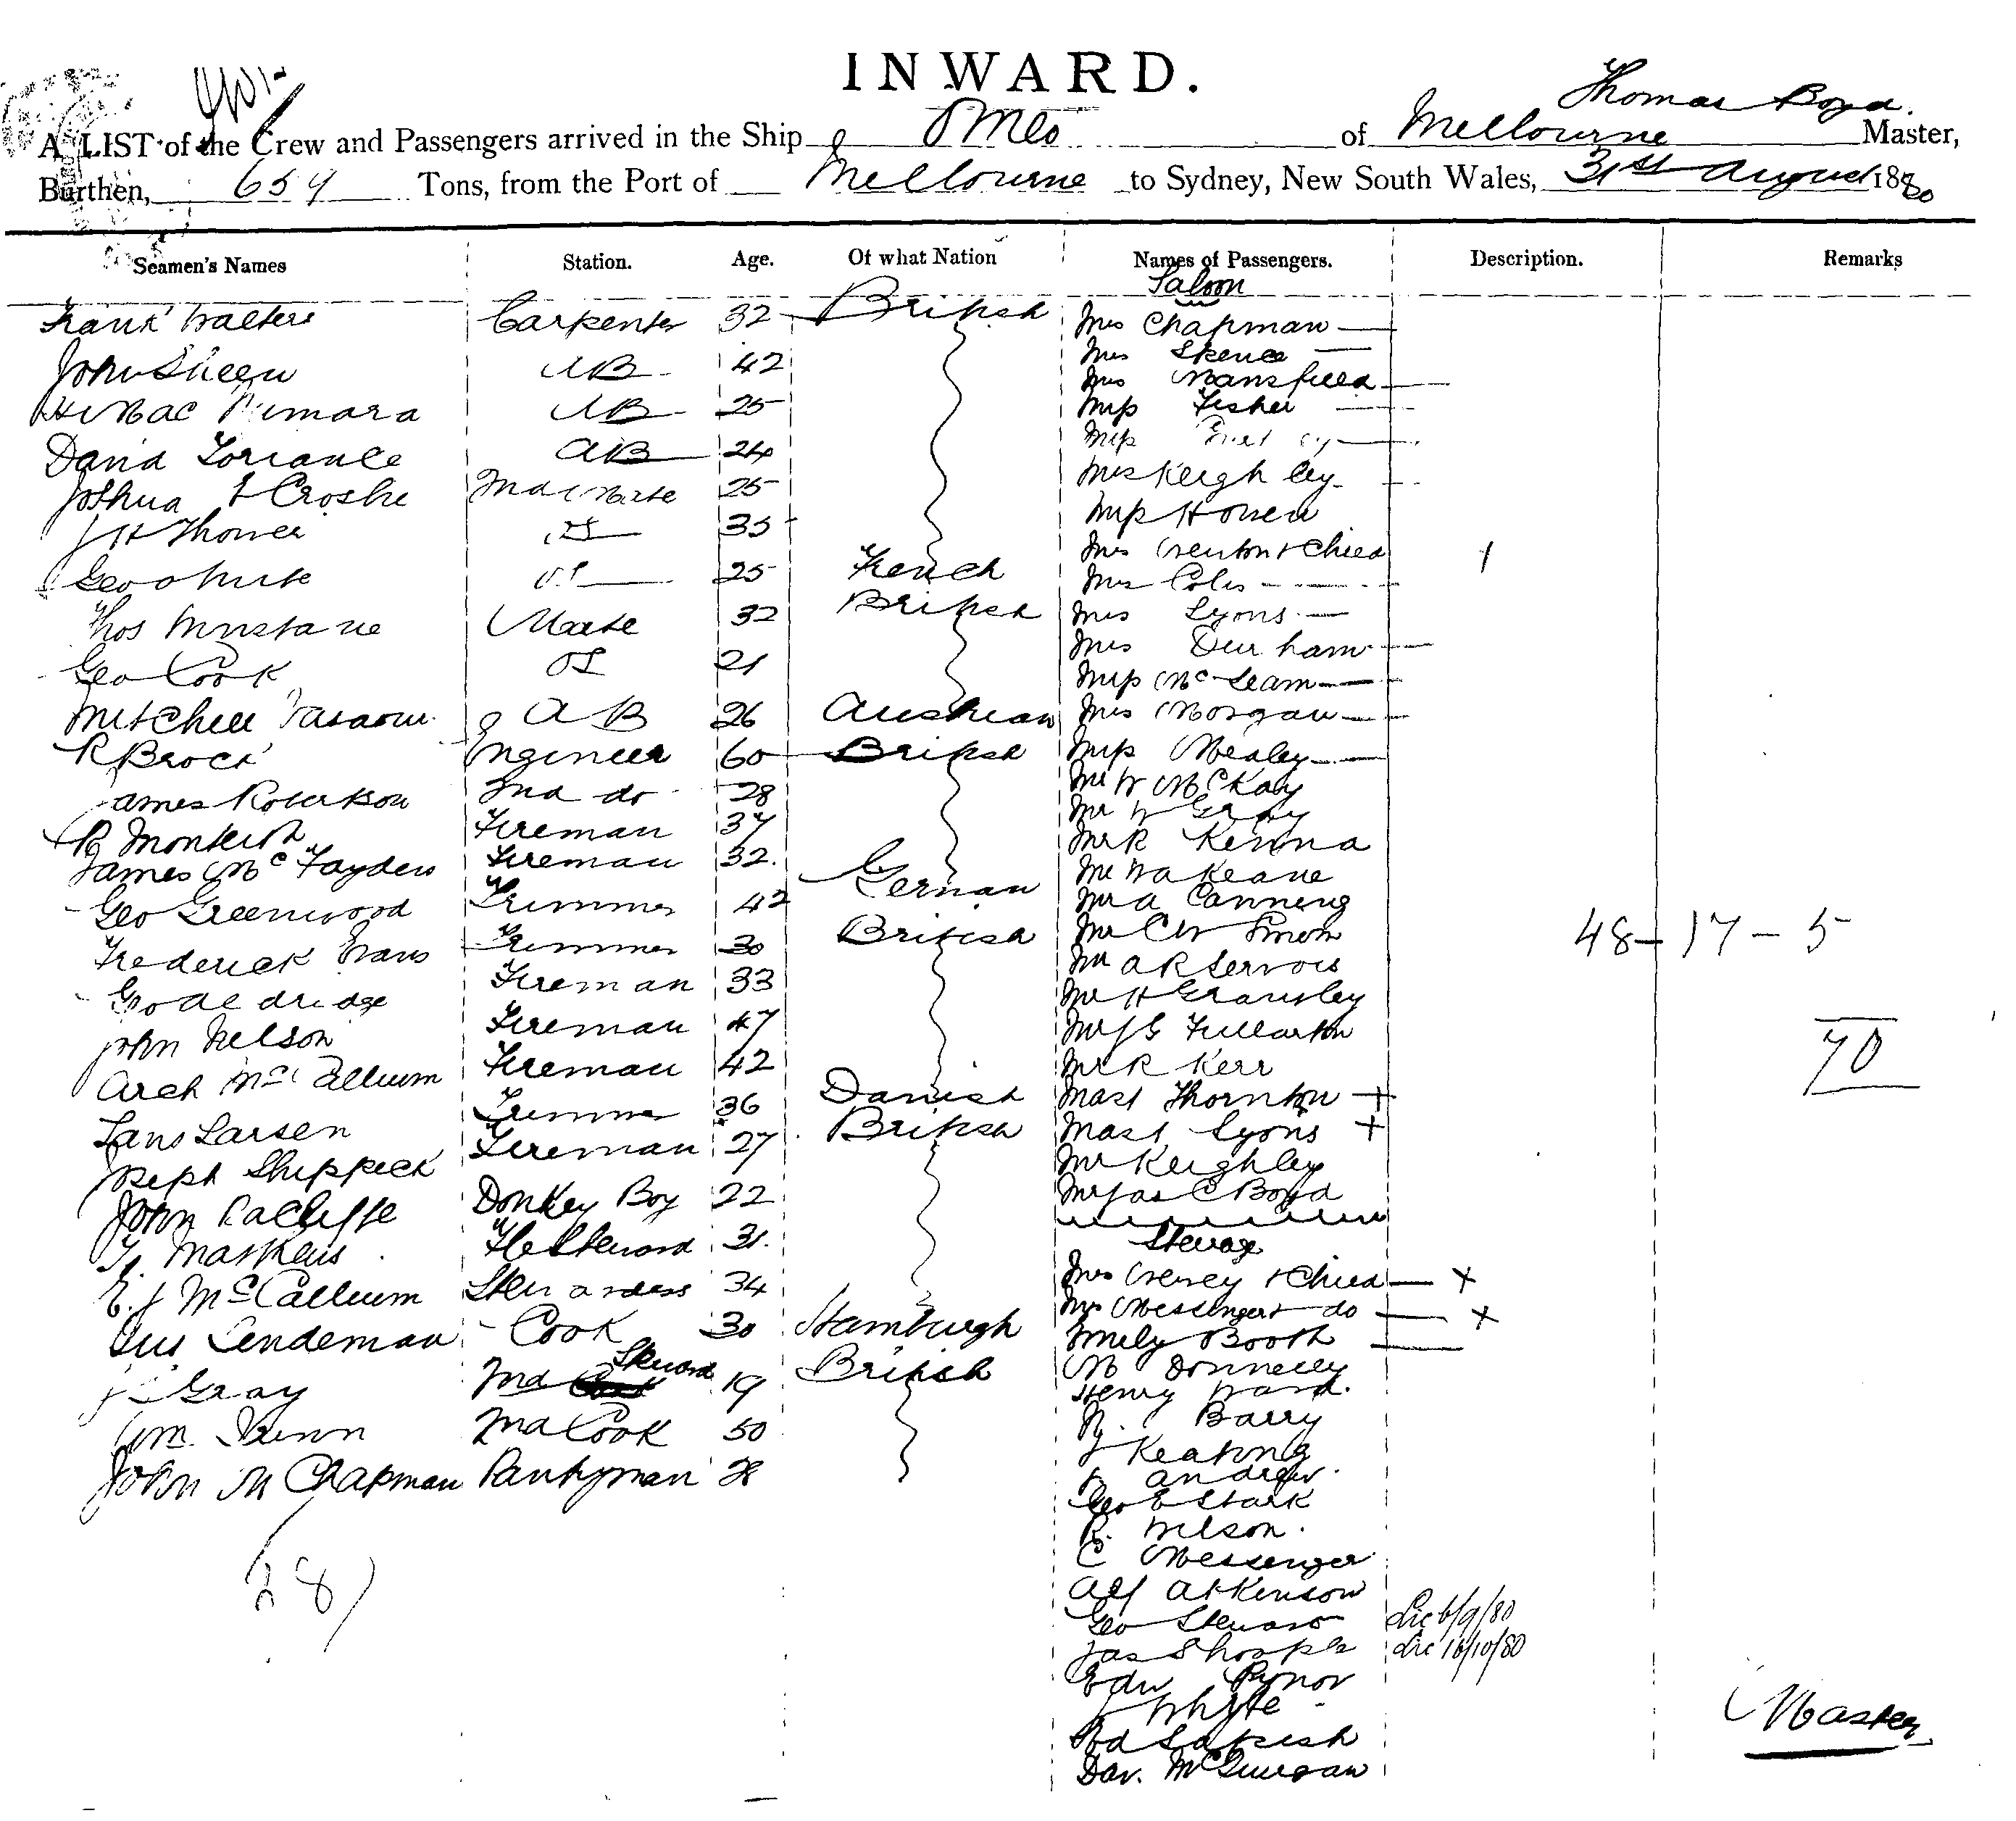 INWARD.
Thomas Boyd
A LIST of the Crew and Passengers arrived in the Ship Omeo of Melbourne Master,
Burthen, 659 Tons, from the Port of Melbourne to Sydney, New South Wales, 31st August 1880
Seamen's Names Station. Age. Of what Nation Names of Passengers. Description. Remarks
Saloon
Frank Walters Carpenter 32 British
John Sheen AB 42
AB 25
David Torrance AB 24
Joshua Crosbie 2nd Mate 25
J H Thower 35
Geo White 25 French
Thos Mate 32 British
Geo Cook OS 21
Mitchell AB 26 Austrian
R Brock Engineer 60 British
James Robertson 2nd do 28
R Monteith Fireman 37
James McFayden Fireman 32.
Geo Greenwood Trimmer 42 German
Frederick Trimmer 30 British
Geo Aldridge Fireman 33
John Nelson Fireman 47
Arch McCallum Fireman 42
Lans Larsen Trimmer 36 Danish
Joseph Shippick Fireman 27 British
John Racliffe Donkey Boy 22
Mathews Steward 31.
E. J McCallum Stewardess 34
Gus Lendeman Cook 30 Hamburgh
J Gray 2nd Steward 19 British
Wm 2nd Cook 50
John M Chapman Pantryman 28
28
Mrs Chapman
Mrs Spence
Mrs Mansfield
Miss Fisher
Miss
Mrs Keighley
Miss Howell
Mrs & Child 1
Mrs Coles
Mrs Lyons
Mrs Durham
Miss
Mrs Morgan
Miss Mealey
Mr W McKay
Mr W Gray
Mr R Kenna
Mr W A Keane
Mr A Canning
Mr C W Simon
Mr A R Servois
Mr H
Mr J G Fullarton
Mr R Kerr
Mast Thornton +
Mast Lyons +
Mr Keighley
Mr Jas C Boyd
Sterage
Mrs & Child x
Mrs Messenger & do x
Emily Booth
M Donnelly
Henry Ward.
R. Barry
J Keating
Andrew
Geo E Stark
R. Nelson.
C Messenger
Alf Atkinson
Geo Steward Lic 6/9/80
Jas Lic 16/10/80
Edw Pynor
J Whyte
Dav.
48-17-5
70
Master